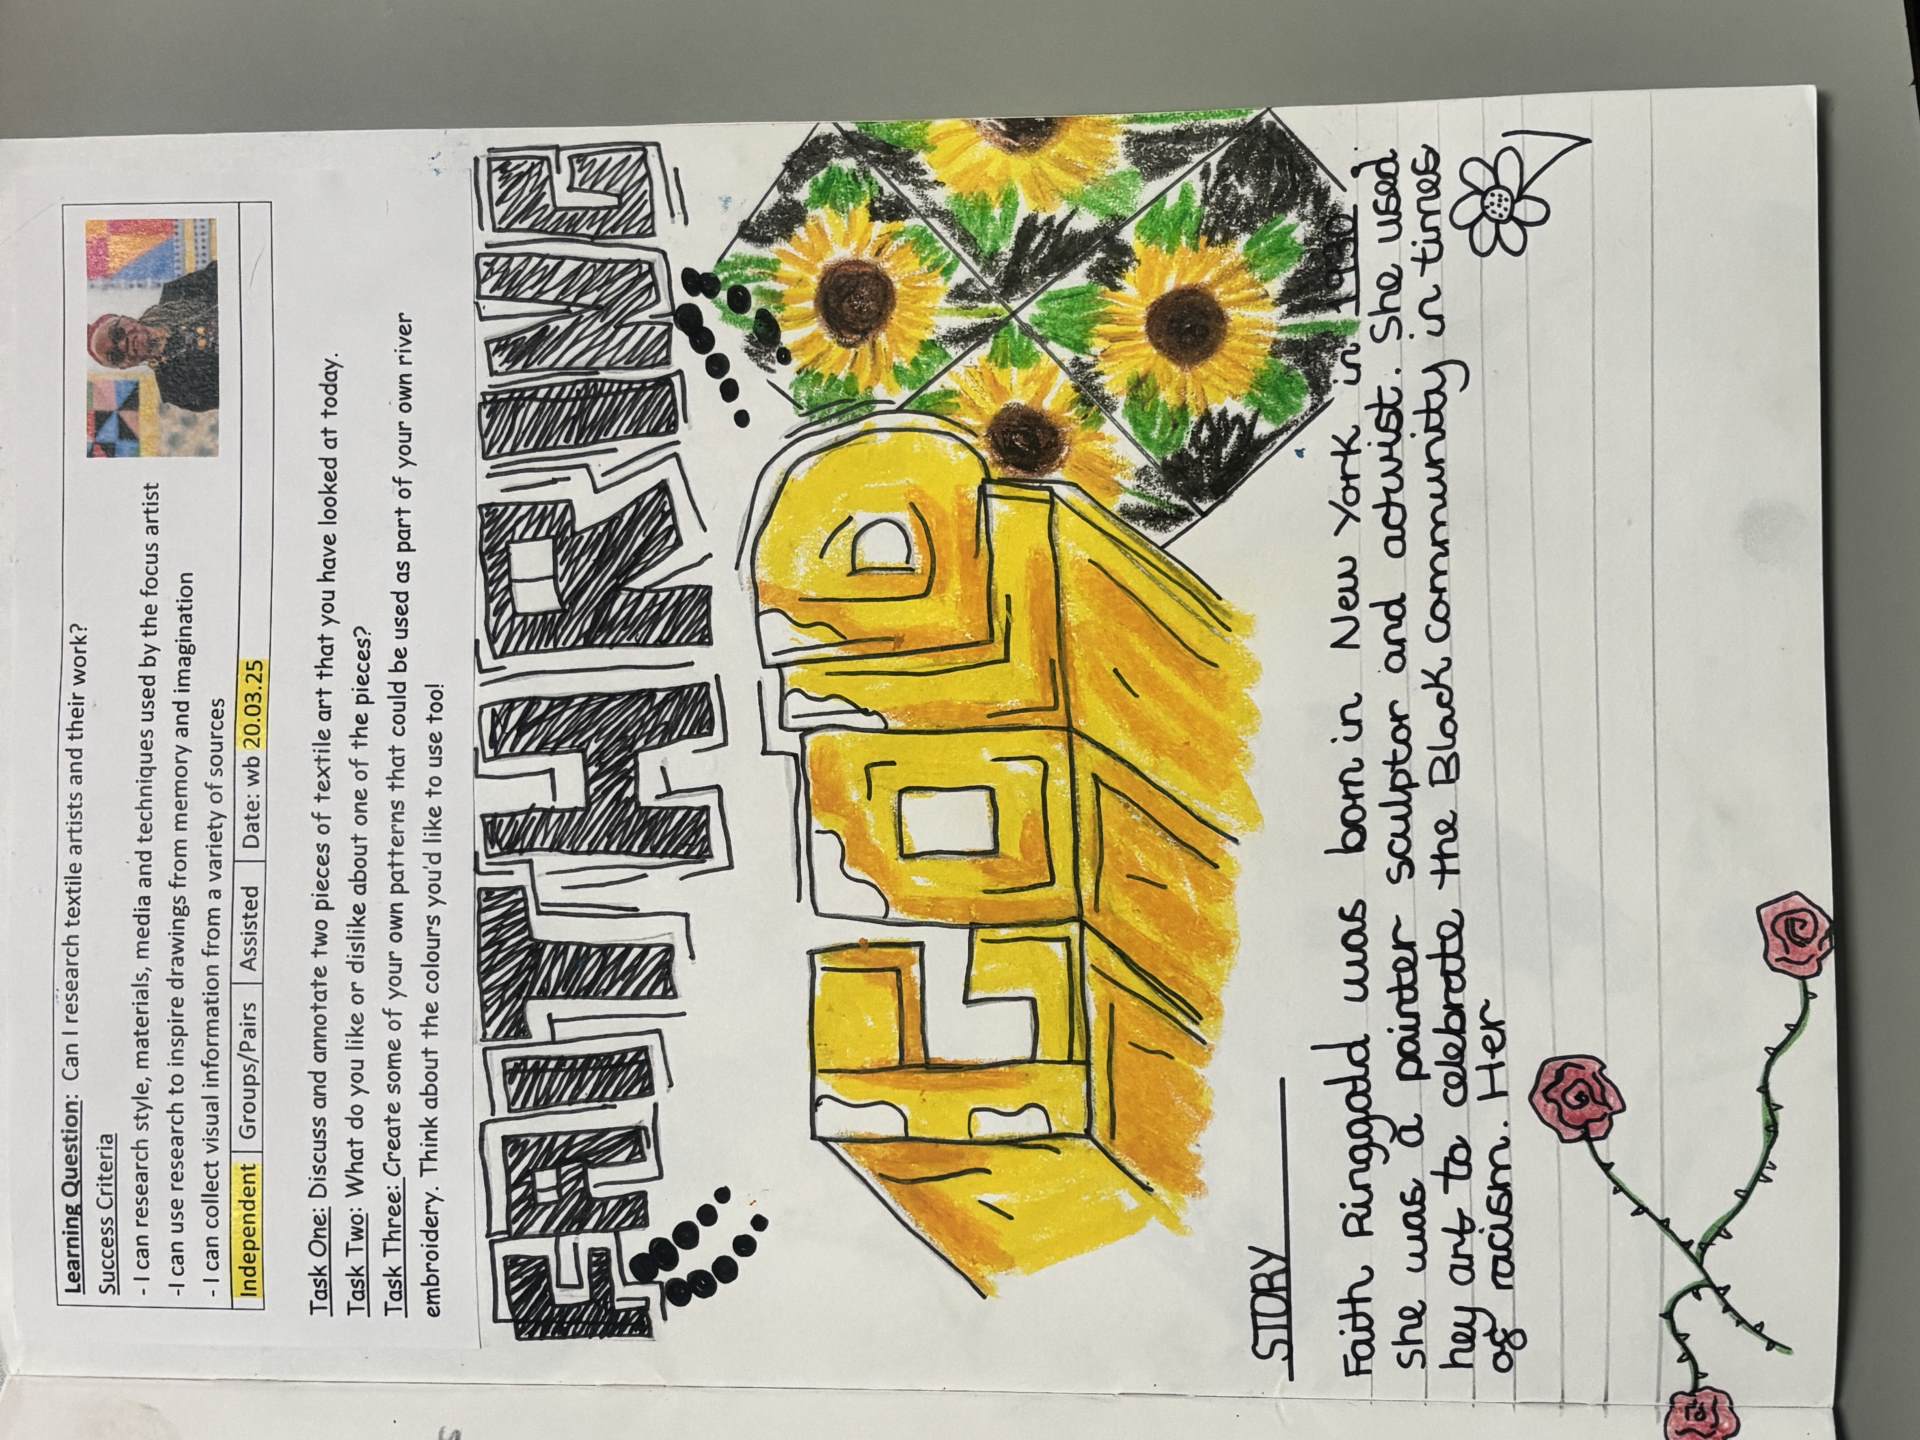 Learning Question: Can I research textile artists and their work?
Success Criteria
- I can research style, materials, media and techniques used by the focus artist
-I can use research to inspire drawings from memory and imagination
- I can collect visual information from a variety of sources
Independent Groups/Pairs Assisted Date: wb 20.03.25
Task One: Discuss and annotate two pieces of textile art that you have looked at today.
Task Two: What do you like or dislike about one of the pieces?
Task Three: Create some of your own patterns that could be used as part of your own river
embroidery. Think about the colours you'd like to use too!
FAITH RING
GOLD
STORY
Faith Ringgold was born in New York in 1930.
She was a painter sculptor and activist. She used
hey art to celebrate the Black community in times
of racism. Her